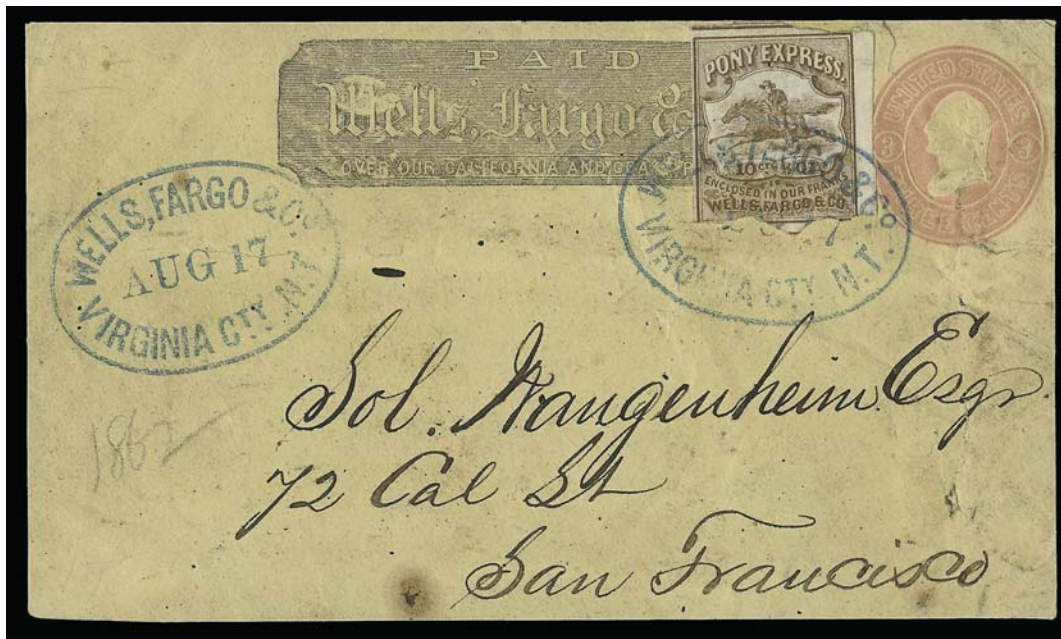 PAID
Wells, Fargo & 
OVER OUR CALIFORNIA AND COAST
PONY EXPRESS.
10 cts ½ oz
ENCLOSED IN OUR FRANKS
WELLS, FARGO & CO.
UNITED STATES
3 3
CENTS
WELLS, FARGO & Co.
AUG 17
VIRGINIA CTY. N.T.
& Co
VIRGINIA CTY. N.T.
Sol. Wangenheim Esqr.
72 Cal St
San Francisco
1862